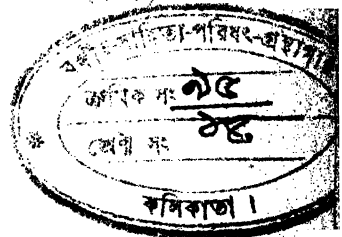 বঙ্গীয়-সাহিত্য-পরিষৎ-গ্রন্থাগার
ক্রমিক সং ৯৫
শ্রেণী সং ১৫
কলিকাতা ।